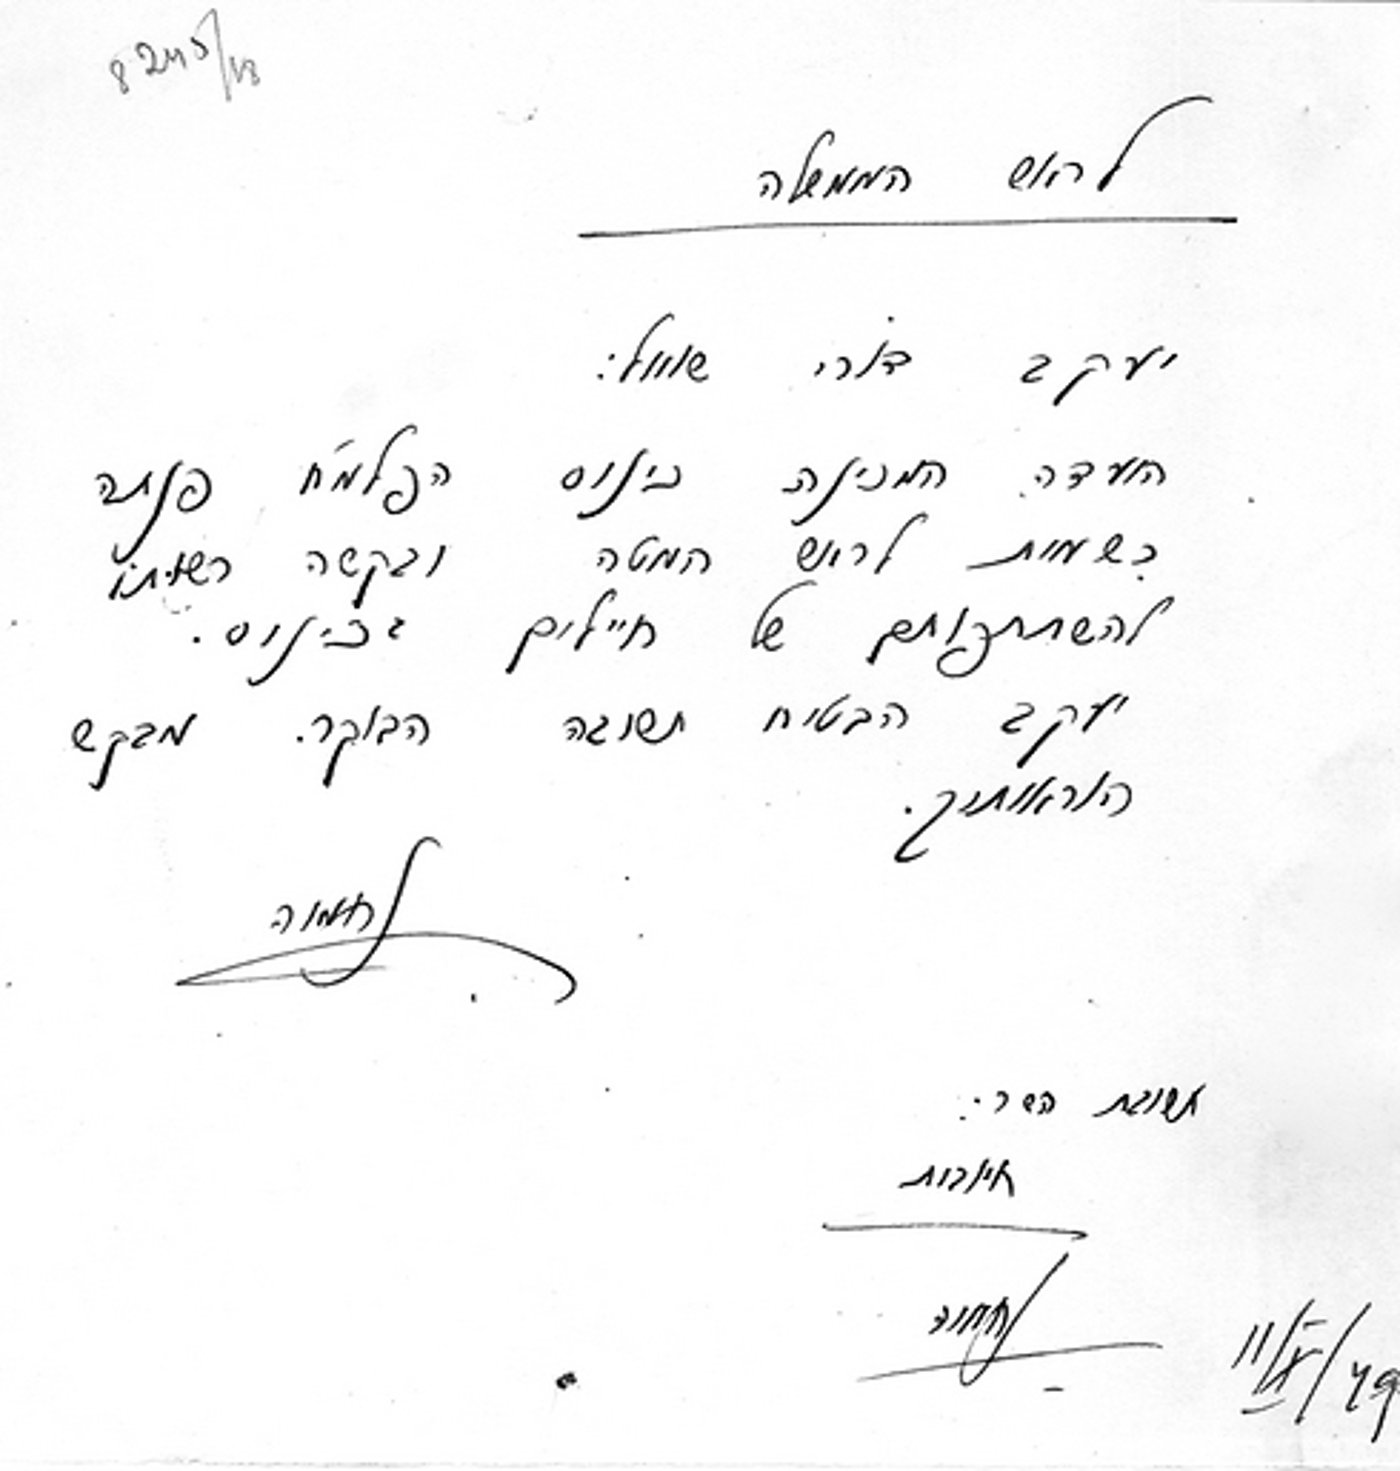 לראש הממשלה
יעקב דורי שואל:
הועדה המכינה כינוס הפלמ"ח פנתה
רשמית לראש המטה ובקשה רשותו
להשתתפותם של חיילים בכינוס.
יעקב הבטיח תשובה הבוקר. מבקש
הוראותיך.
נחמיה
תשובת השר:
חיובית
נחמיה
11/X/49